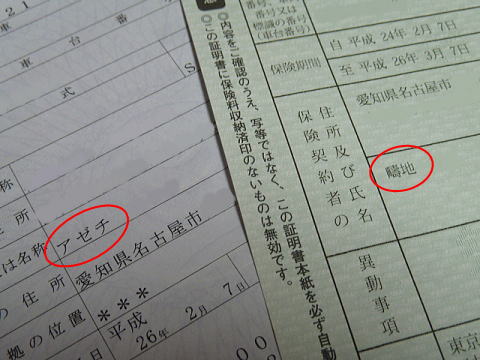 21
車台番
式
称
住所
は名称 アゼチ
の住所 愛知県名古屋市
拠の位置 ***
平成
26年 2月 7日
◎内容をご確認のうえ、写等ではなく、この証明書本紙を必ず自動
◎この証明書に保険料収納済印のないものは無効です。
番号又は
標識の番号
(車台番号)
保険期間
自 平成 24年 2月 7日
至 平成 26年 3月 7日
保険契約者の
住所及び氏名
愛知県名古屋市
疇地
異動事項
東京